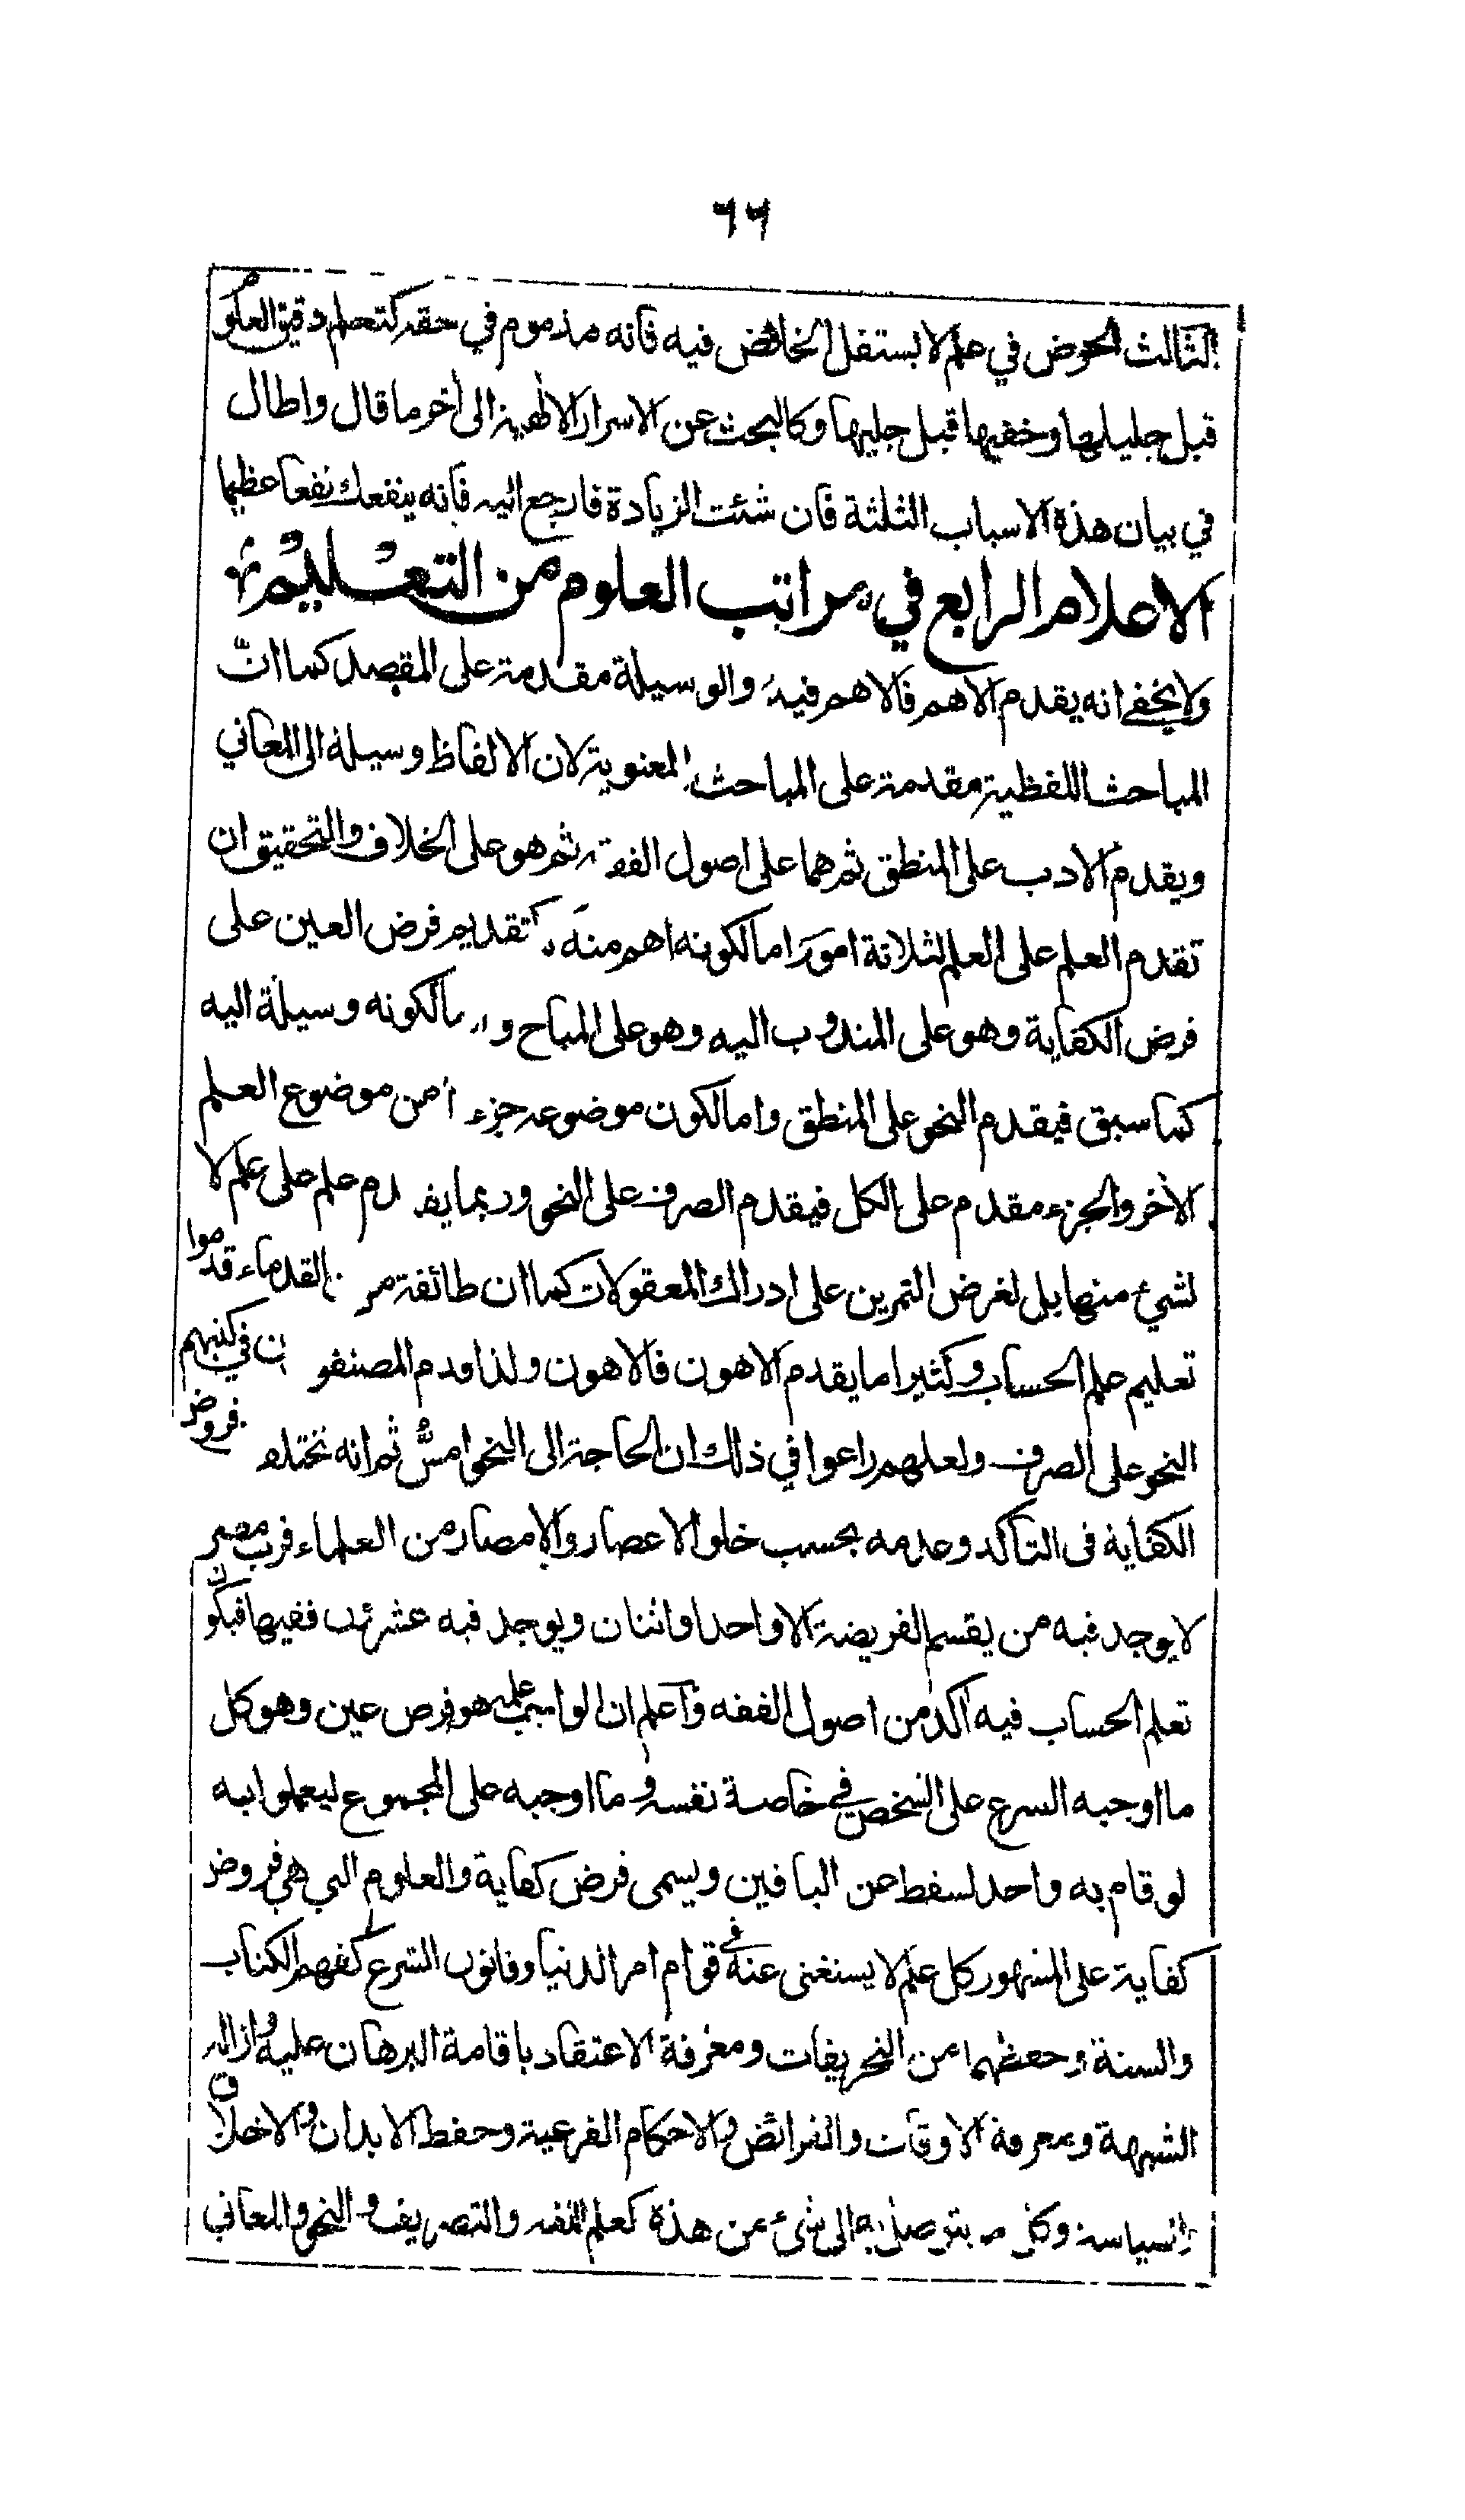 ٦٦
الثالث الخوض في علم لا يستقل الخائض فيه فانه مذموم في حقه كتعلم دقيق العلوم
قبل جليلها وخفيها قبل جليها وكالبحث عن الاسرار الالهية الى اخر ما قال واطال
في بيان هذه الاسباب الثلثة فان شئت الزيادة فارجع اليه فانه ينفعك نفعا عظيما
الاعلام الرابع في مراتب العلوم من التعليم
ولا يخفى انه يقدم الاهم فالاهم فيه والوسيلة مقدمة على المقصد كما ان
المباحث اللفظية مقدمة على المباحث المعنوية لان الالفاظ وسيلة الى المعاني
ويقدم الادب على المنطق ثم هما على اصول الفقه ثم هو على الخلاف والتحقيق ان
تقدم العلم على العلم لثلاثة امور اما لكونه اهم منه كتقديم فرض العين على
فرض الكفاية وهو على المندوب اليه وهو على المباح واما لكونه وسيلة اليه
كما سبق فيقدم النحو على المنطق واما لكون موضوعه جزء ا من موضوع العلم
الاخر والجزء مقدم على الكل فيقدم الصرف على النحو وربما يقدم علم على علم لا
لشيء منها بل لغرض التمرين على ادراك المعقولات كما ان طائفة من القدماء قدموا
تعليم علم الحساب وكثيرا ما يقدم الاهون فالاهون ولذا قدم المصنفون في كتبهم
النحو على الصرف ولعلهم راعوا في ذلك ان الحاجة الى النحو امسّ ثم انه تختلف فروض
الكفاية في التاكد وعدمه بحسب خلو الاعصار والامصار من العلماء فرب مصر
لا يوجد فيه من يقسم الفريضة الا واحد او اثنان ويوجد فيه عشرون فقيها فيكون
تعلم الحساب فيه اكد من اصول الفقه واعلم ان الواجب علمه هو فرض عين وهو كل
ما اوجبه الشرع على الشخص في خاصة نفسه وما اوجبه على المجموع ليعملوا به
لو قام به واحد لسقط عن الباقين ويسمى فرض كفاية والعلوم التي هي فروض
كفاية على المشهور كل علم لا يستغنى عنه في قوام امر الدنيا وقانون الشرع كفهم الكتاب
والسنة وحفظهما من التحريفات ومعرفة الاعتقاد باقامة البرهان عليه وازالة
الشبهة ومعرفة الاوقات والفرائض والاحكام الفرعية وحفظ الابدان والاخلاق
والسياسة وكل ما يتوصل به الى شئ من هذه كعلم اللغة والتصريف والنحو والمعاني